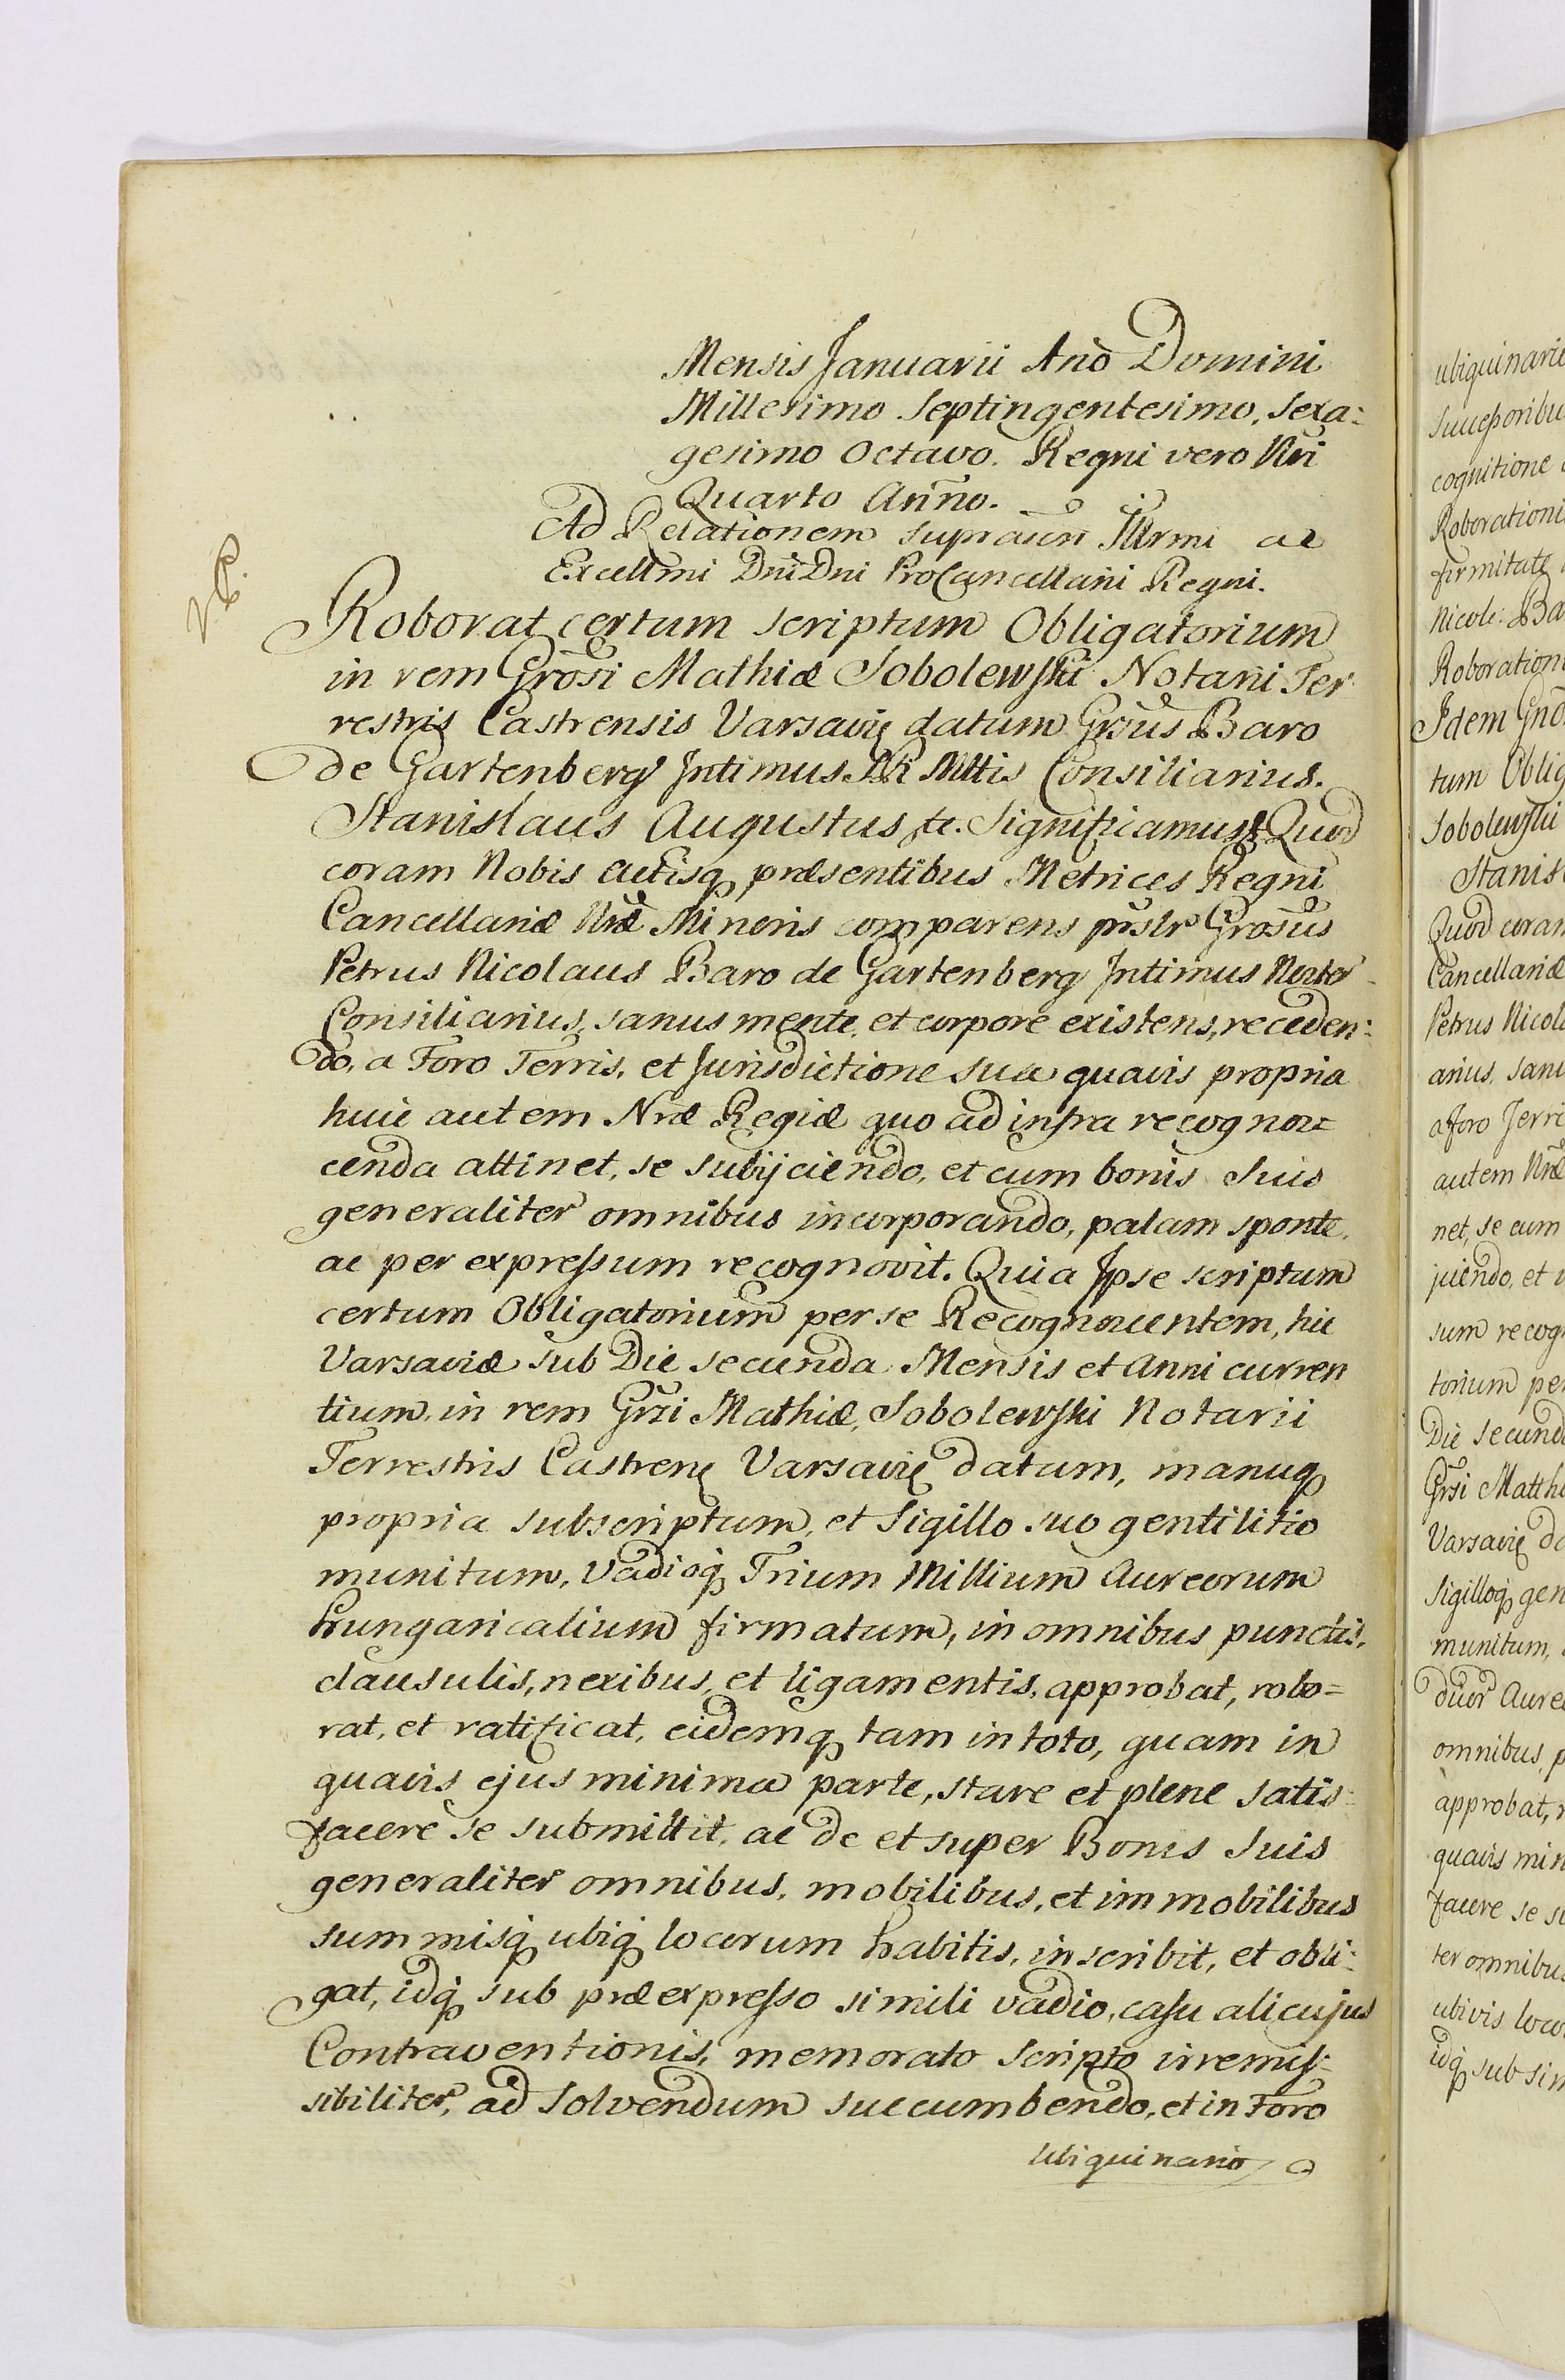 Mensis Januarii Ano Domini
Millesimo Septingentesimo, Sexa:
gesimo Octavo. Regni vero Nri
Quarto Anno.
Ad Relationem supradn Illrmi ac
Excellmi Dni Dni ProCancellarii Regni.
Roborat certum scriptum Obligatorium
in rem Grosi Mathiæ Sobolewski Notarii Ter
restris Castrensis Varsavię datum Grsus Baro
de Gartenberg Intimus SR Mttis Consiliarius.
Stanislaus Augustus &c. Significamus &c Quod
coram Nobis Actisq præsentibus Metrices Regni
Cancellariæ Nræ Minoris comparens prslr Grosus
Petrus Nicolaus Baro de Gartenberg Intimus Noster
Consiliarius, sanus mente, et corpore existens, receden:
do, a Foro Terris, et Jurisdictione sua quavis propria
huic autem Nræ Regiæ quo ad infra recognos:
cenda attinet, se subijciendo, et cum bonis Suis
generaliter omnibus incorporando, palam sponte,
ac per expressum recognovit. Quia Ipse scriptum
certum Obligatorium per se Recognoscentem, hic
Varsaviæ sub Die secunda Mensis et Anni curren
tium, in rem Grsi Mathiæ, Sobolewski Notarii
Terrestris Castrenę Varsavię datum, manuq
propria subscriptum, et Sigillo suo gentilitio
munitum, Vadioq Trium Millium Aureorum
hungaricalium firmatum, in omnibus punctis,
clausulis, nexibus, et ligamentis, approbat, robo=
rat, et ratificat, eidemq tam in toto, quam in
quavis ejus minima parte, stare et plene satis:
facere se submittit, ac de et super Bonis Suis
generaliter omnibus, mobilibus, et immobilibus
summisq ubiq locorum habitis, inscribit, et obli:
gat, idq sub præexpresso simili vadio, casu alicujus
Contraventionis, memorato Scripto irremis:
sibiliter, ad Solvendum succumbendo, et in Foro
Ubiquinario
ubiquinario
Successoribu
cognitione
Roborationi
firmitate
Nicole: Ba
Roboration
Idem Gno
tum Oblig
Sobolewski
Stanis
Quod coram
Cancellariæ
Petrus Nicol
arius, san
a foro Terri
autem Nræ
net, se cum
jiciendo, et i
sum recog
torium pe
Die secund
Grsi Matth
Varsavię da
Sigilloq gen
munitum,
duor Aure
omnibus, p
approbat, r
quavis min
facere se s
ter omnibu
ubivis loco
idq sub sim